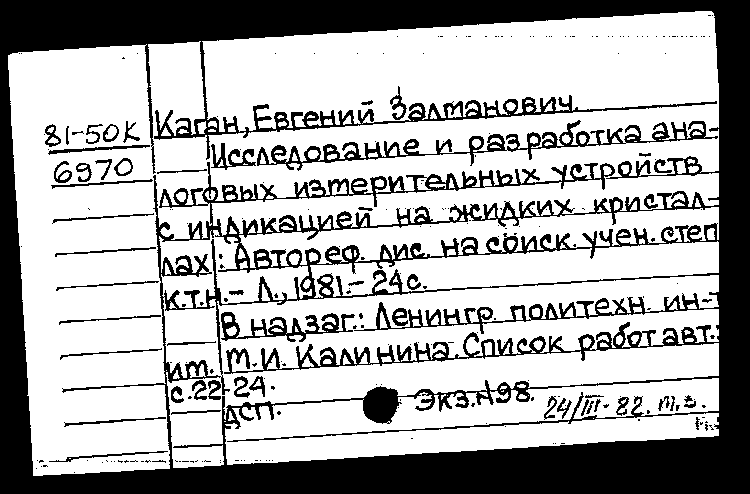 81-50К Каган, Евгений Залманович.
6970 Исследование и разработка ана-
логовых измерительных устройств
с индикацией на жидких кристал-
лах: Автореф. дис. на соиск. учен. степ
к.т.н. - Л., 1981. - 24с.
В надзаг.: Ленингр. политехн. ин-т
им. М.И. Калинина. Список работ авт.:
с.22-24.
ДСП. Экз.№98. 24/III-82. т.з.